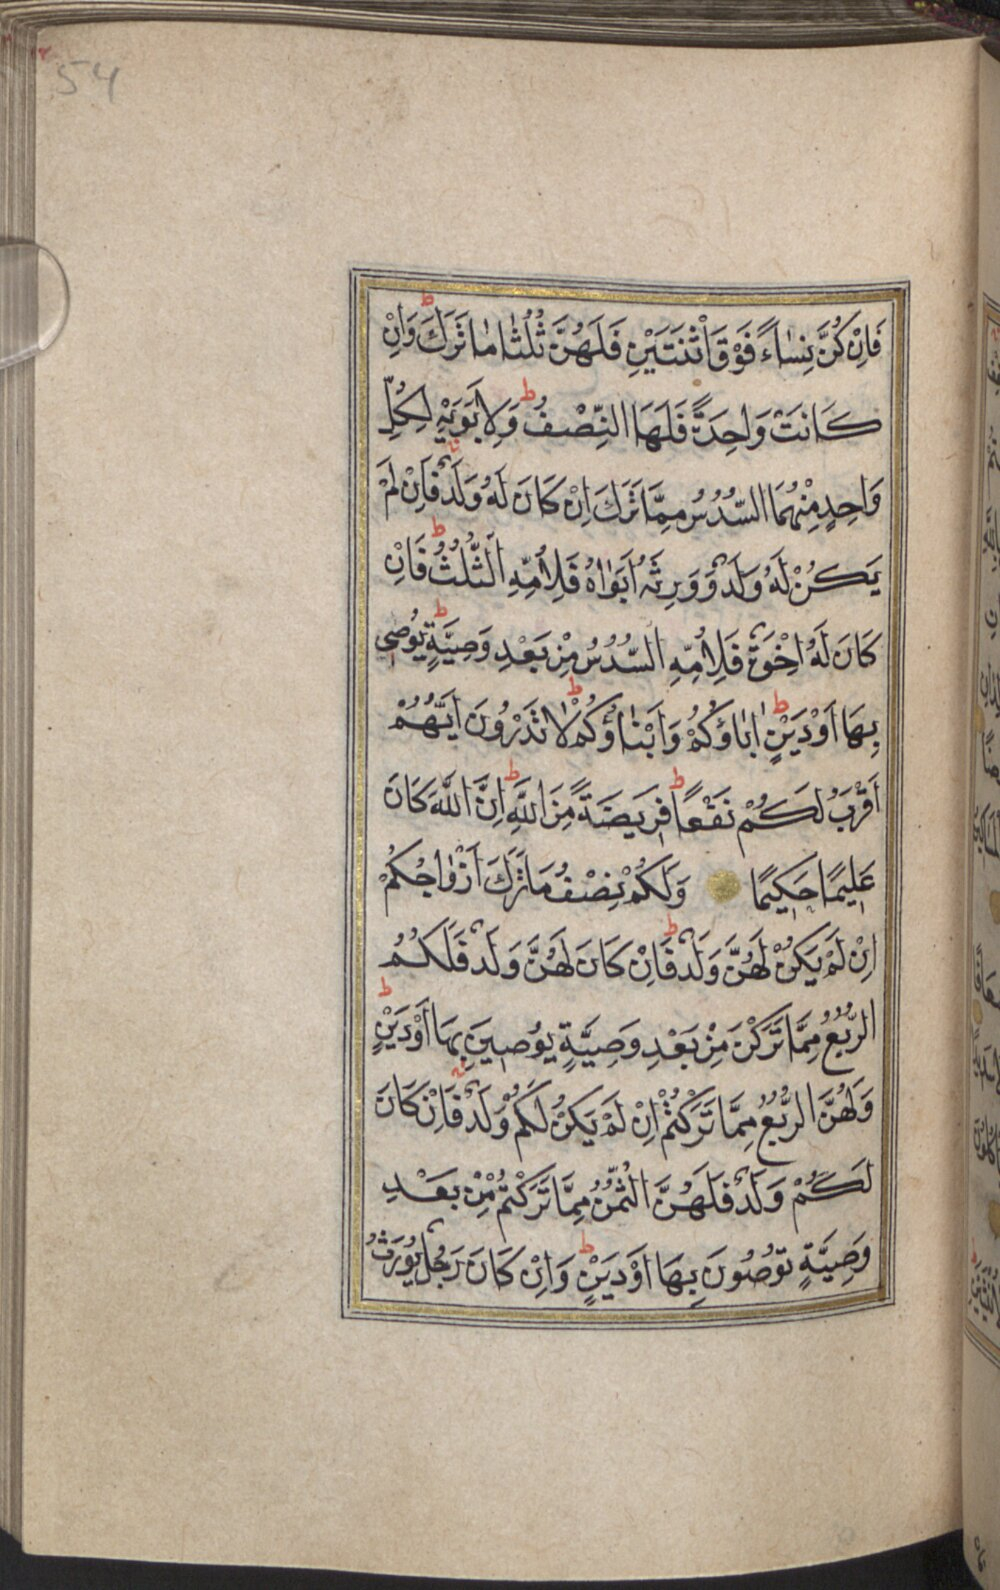 54
فَاِنْ كُنَّ نِسَاءً فَوْقَ اثْنَتَيْنِ فَلَهُنَّ ثُلُثَا مَا تَرَكَ ط وَاِنْ
كَانَتْ وَاحِدَةً فَلَهَا النِّصْفُ ط وَلِاَبَوَيْهِ لِكُلِّ
وَاحِدٍ مِنْهُمَا السُّدُسُ مِمَّا تَرَكَ اِنْ كَانَ لَهُ وَلَدٌ فَاِنْ لَمْ
يَكُنْ لَهُ وَلَدٌ وَوَرِثَهُ اَبَوَاهُ فَلِاُمِّهِ الثُّلُثُ ط فَاِنْ
كَانَ لَهُ اِخْوَةٌ فَلِاُمِّهِ السُّدُسُ مِنْ بَعْدِ وَصِيَّةٍ يُوصِي
بِهَا اَوْ دَيْنٍ ط اٰبَاؤُكُمْ وَاَبْنَاؤُكُمْ ط لَا تَدْرُونَ اَيُّهُمْ
اَقْرَبُ لَكُمْ نَفْعًا ط فَرِيضَةً مِنَ اللّٰهِ ط اِنَّ اللّٰهَ كَانَ
عَلِيمًا حَكِيمًا وَلَكُمْ نِصْفُ مَا تَرَكَ اَزْوَاجُكُمْ
اِنْ لَمْ يَكُنْ لَهُنَّ وَلَدٌ ط فَاِنْ كَانَ لَهُنَّ وَلَدٌ فَلَكُمُ
الرُّبُعُ مِمَّا تَرَكْنَ مِنْ بَعْدِ وَصِيَّةٍ يُوصِينَ بِهَا اَوْ دَيْنٍ ط
وَلَهُنَّ الرُّبُعُ مِمَّا تَرَكْتُمْ اِنْ لَمْ يَكُنْ لَكُمْ وَلَدٌ فَاِنْ كَانَ
لَكُمْ وَلَدٌ فَلَهُنَّ الثُّمُنُ مِمَّا تَرَكْتُمْ مِنْ بَعْدِ
وَصِيَّةٍ تُوصُونَ بِهَا اَوْ دَيْنٍ ط وَاِنْ كَانَ رَجُلٌ يُورَثُ